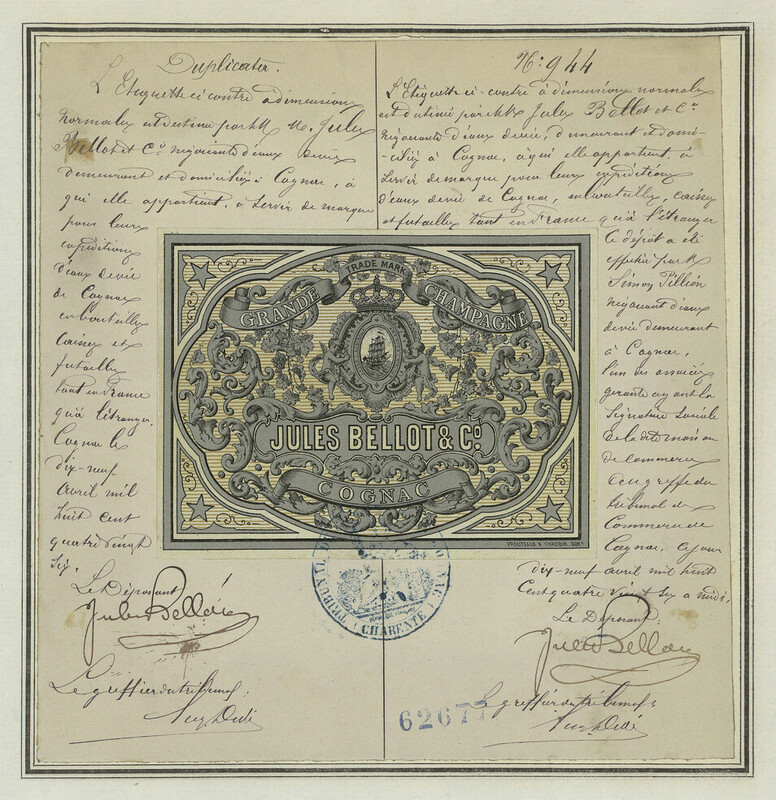 Duplicata.
L'Etiquette ci contre a dimensions
normales est destiné par M. M. Jules
Bellot et Co négociants d'eaux de vie
demeurant et domiciliés à Cognac, à
qui elle appartient, à servir de marque
pour leurs
expéditions
d'eaux de vie
de Cognac
en bouteilles
caisses et
futailles
tant en France
qu'à l'étranger.
Cognac le
dix-neuf
avril mil
huit cent
quatre vingt
six.
Le Déposant
Le greffier du tribunal
No. 944
L'Etiquette ci-contre à dimensions normales
est destiné par MM. Jules Bellot et Cie
négociants d'eaux de vie, demeurant et domi-
ciliés à Cognac, à qui elle appartient, à
servir de marque pour leurs expéditions
d'eaux de vie de Cognac, en bouteilles, caisses
et futailles tant en France qu'à l'étranger
Ce dépôt a été
effectué par M.
Simon Pillion
négociant d'eaux
de vie demeurant
à Cognac,
l'un des associés
gérants ayant la
signature sociale
de la dite maison
de commerce
au greffe du
tribunal de
Commerce de
Cognac, ce jour
dix-neuf avril mil huit
cent quatre vingt six à midi.
Le Déposant,
Le greffier du tribunal
TRADE MARK
GRANDE CHAMPAGNE
JULES BELLOT & Co
COGNAC
CHARENTE
62677